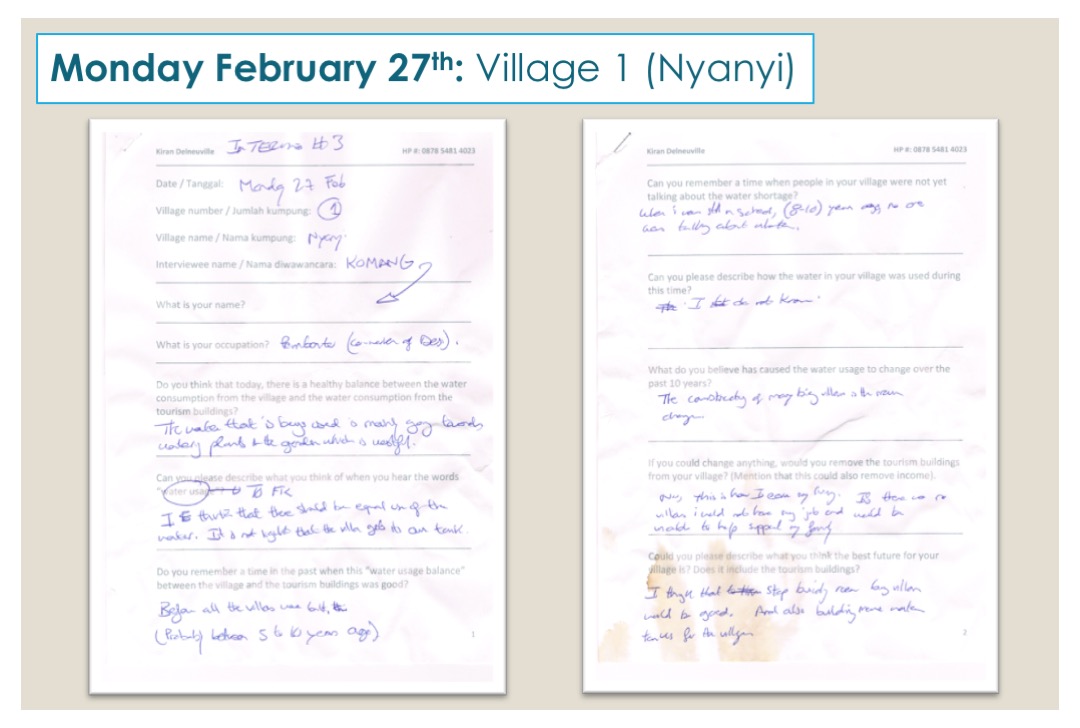 Monday February 27th: Village 1 (Nyanyi)
Kiran Delneuville
#3
HP #: 0878 5481 4023
Date / Tanggal: Monday 27 Feb
Village number / Jumlah kumpung: 1
Village name / Nama kumpung:
Interviewee name / Nama diwawancara: KOMANG
What is your name?
What is your occupation?
Do you think that today, there is a healthy balance between the water
consumption from the village and the water consumption from the
tourism buildings?
The water that is being used is mainly going towards
watering plants & the garden which is
Can you please describe what you think of when you hear the words
"water usage
I think that there should be equal use of the
water. It is not right that the villa gets its own tank.
Do you remember a time in the past when this "water usage balance"
between the village and the tourism buildings was good?
Before all the villas were built,
(Probably between 5 to 10 years ago)
1
Kiran Delneuville
HP #: 0878 5481 4023
Can you remember a time when people in your village were not yet
talking about the water shortage?
When i was still in school, (8-10) years ago no one
was talking about water.
Can you please describe how the water in your village was used during
this time?
I do not know.
What do you believe has caused the water usage to change over the
past 10 years?
The of many big villas is the main
change
If you could change anything, would you remove the tourism buildings
from your village? (Mention that this could also remove income).
this is how I earn my living. If there were no
villas i would not have my job and would be
unable to help support my family
Could you please describe what you think the best future for your
village is? Does it include the tourism buildings?
I think that stop building more big villas
would be good. And also building more water
for the villagers
2